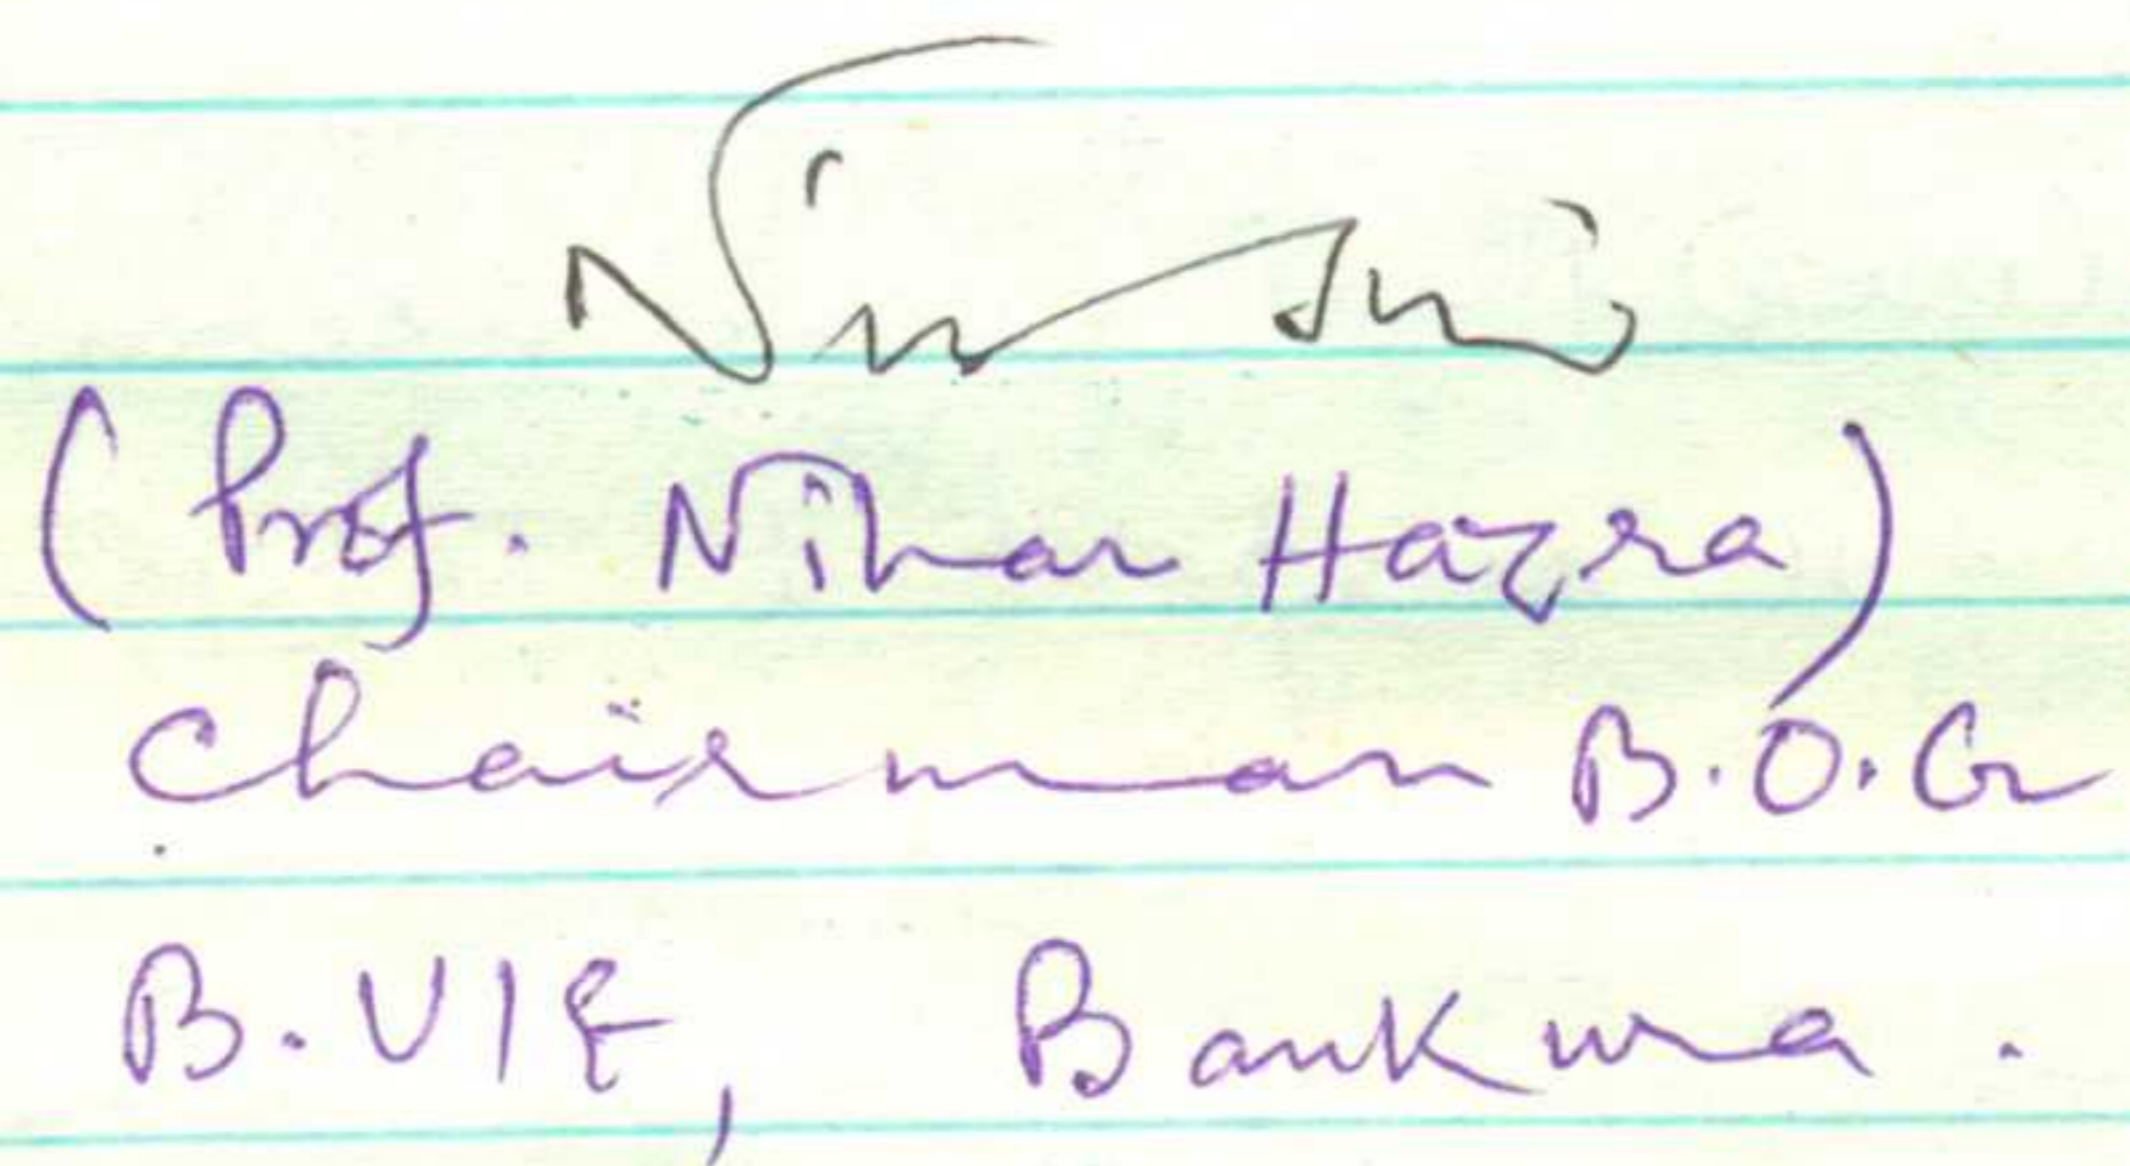 (Prof. Nihar Hazra)
Chairman B.O.G
B.UIE, Bankura.